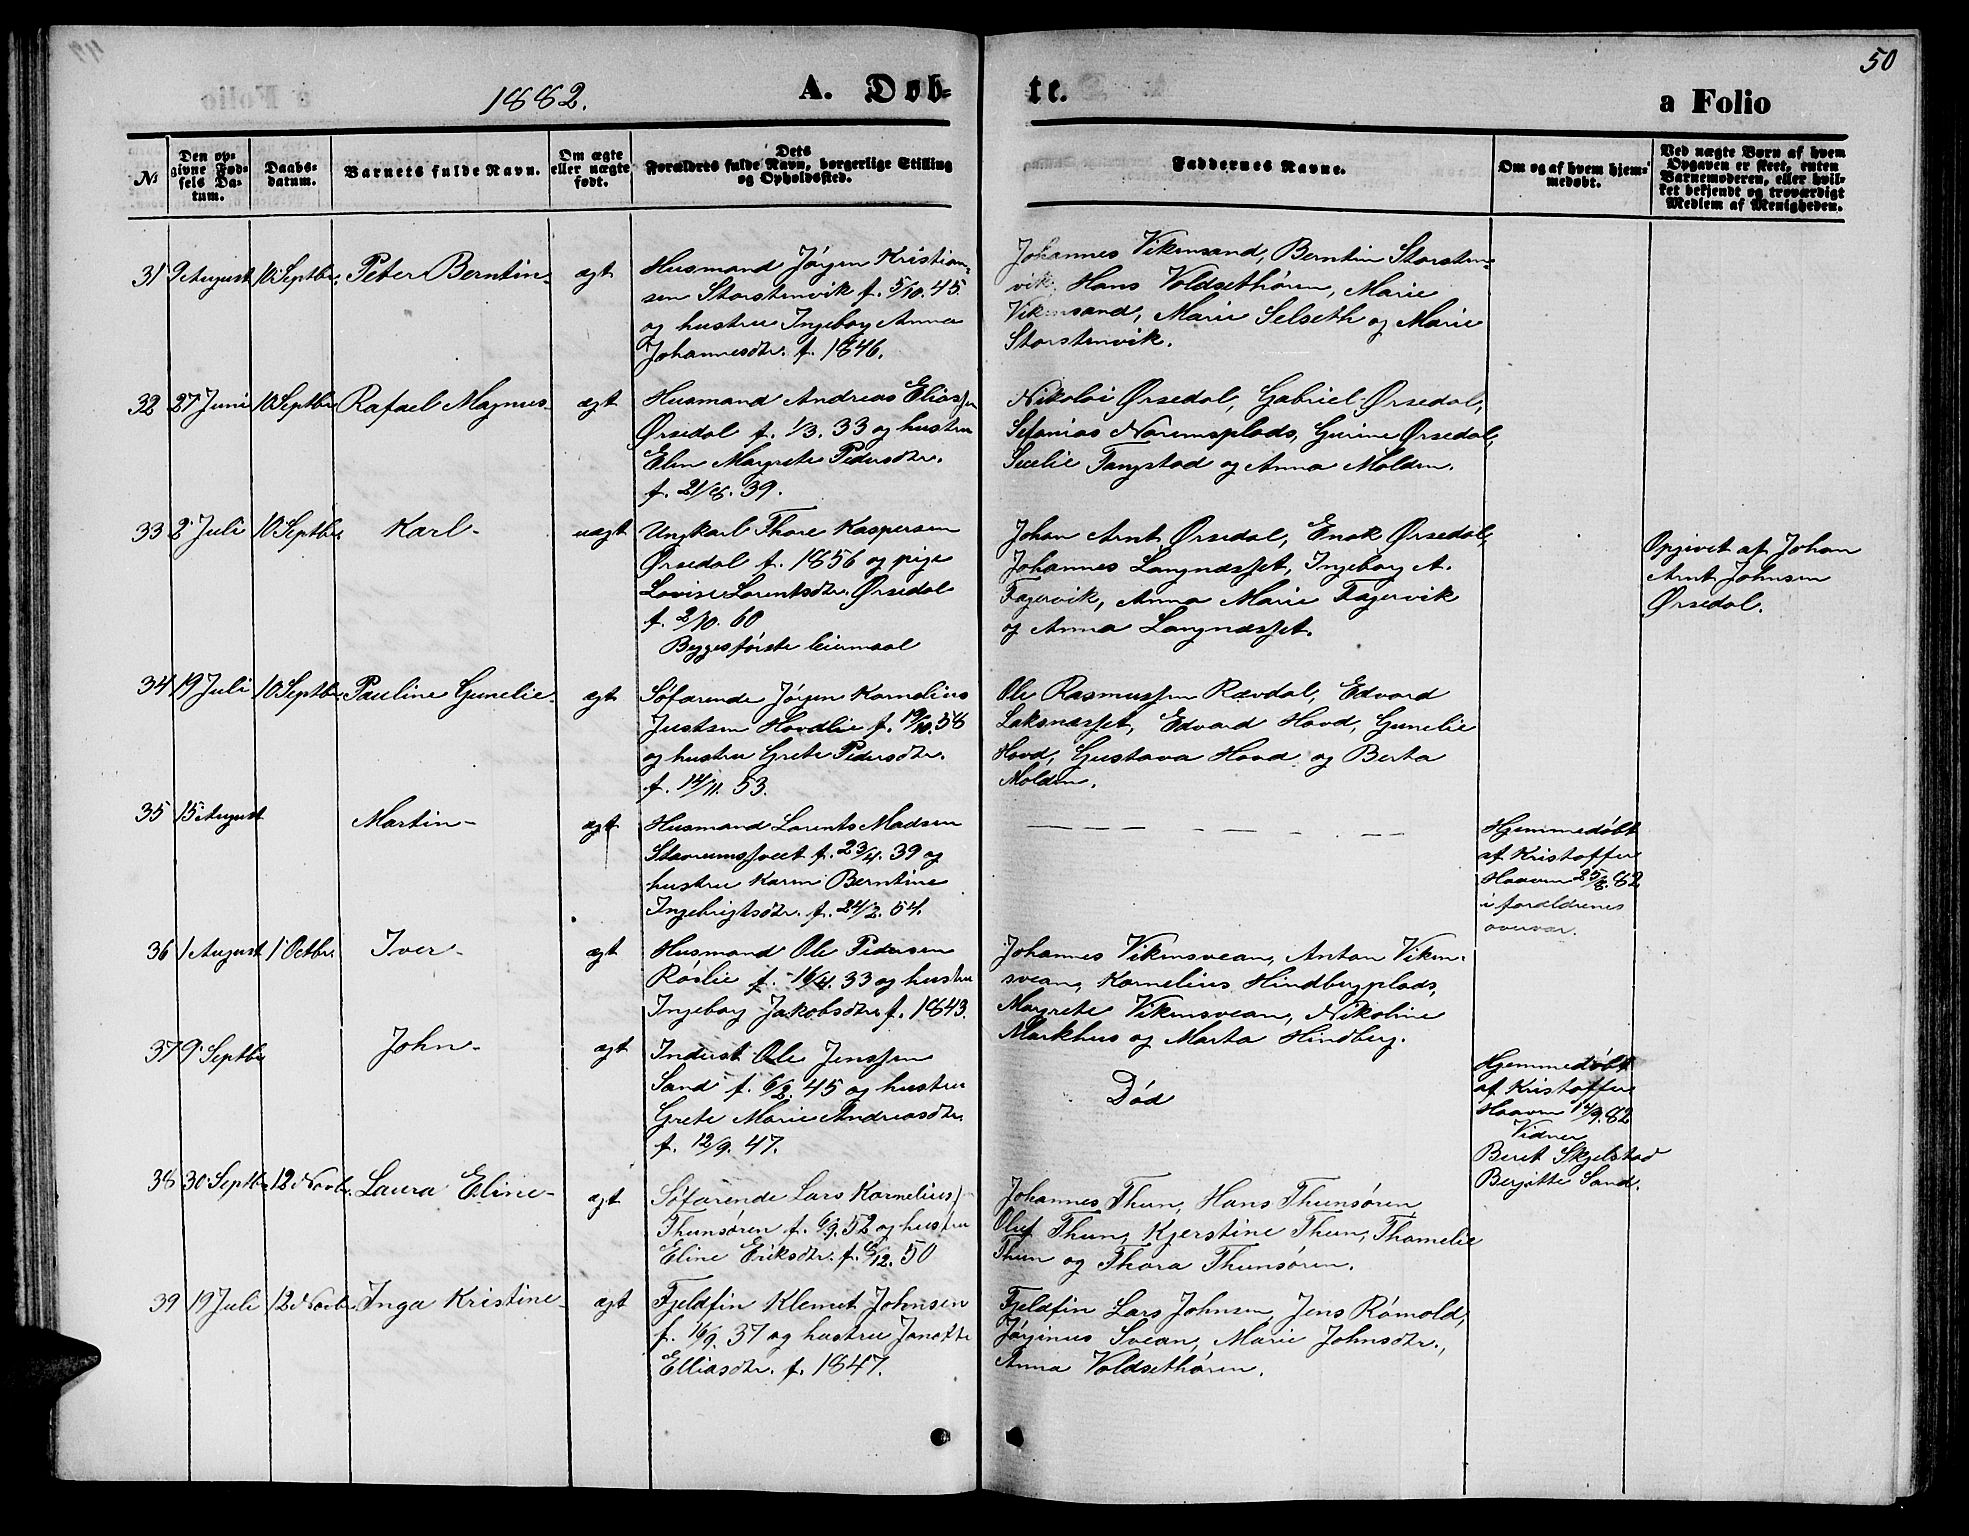 50
1882.
A. Døb-
te.
a Folio
№
Den op-
givne Fød-
sels Da-
tum.
Daabs-
datum.
Barnets fulde Navn.
Om ægte
eller uægte
født.
Dets
Forældres fulde Navn, borgerlige Stilling
og Opholdssted.
Faddernes Navne.
Om og af hvem hjem-
medøbt.
Ved uægte Børn af hvem
Opgaven er skeet, enten
Barnemoderen, eller hvil-
ket bekjendt og troværdigt
Medlem af Menigheden.
31 9 August 10 Septbr. Peter Berntin- ægt
Husmand Jörgen Kristian-
sen Storstenvik f. 5/10.45
og hustru Ingeborg Anna
Johannesdtr. f. 1846.
Johannes Vikensand, Berntin Storsten-
vik, Hans Voldsethören, Marie
Vikensand, Marie Selseth og Marie
Storstenvik.
32 27 Juni 10 Septbr Rafael Magnus- ægt
Husmand Andreas Eliassen
Ørsedal f. 1/3. 33 og hustru
Elen Margrete Pedersdtr.
f. 21/8. 39.
Nikolai Ørsedal, Gabriel Ørsedal,
Sefanias Noremsplads, Gurine Ørsedal,
Secelie Fangstad og Anna Molden.
33 2 Juli 10 Septbr. Karl- uægt
Ungkarl Thore Kaspersen
Ørsedal f. 1856 og pige
Lovise Lorentsdtr. Ørsedal
f. 2/10. 60
Begges förste leiermaal
Johan Arnt Ørsedal, Enok Ørsedal,
Johannes Langnæsset, Ingeborg A.
Fagervik, Anna Marie Fagervik
og Anna Langnæsset.
Opgivet af Johan
Arnt Johnsen
Ørsedal.
34 19 Juli 10 Septbr. Pauline Gunelie- ægt
Söfarende Jörgen Kornelius
Justsen Hovdlie f. 19/10.58
og hustru Grete Pedersdtr.
f. 14/11. 53.
Ole Rasmussen Rævdal, Edvard
Laksnæsset, Edvard Hovd, Gunelie
Hovd, Gustava Hovd og Berta
Molden.
35 15 August Martin- ægt
Husmand Lorents Madsen
Stavrumsveet f. 23/4. 39 og
hustru Karen Berntine
Ingebrigtsdtr. f. 24/2. 54.
Hjemmedöbt
af Kristoffer
Haaven 25/8.82
i forældrenes
overvær.
36 1 August 1 Octbr. Iver- ægt
Husmand Ole Pedersen
Röslie f. 16/4. 33 og hustru
Ingeborg Jakobsdtr f. 1843.
Johannes Vikensvean, Anton Viken-
svean, Kornelius Hindbergplads,
Margrete Vikensvean, Nikoline
Markhus og Marta Hindberg.
37 9 Septbr John- ægt
Inderst Ole Jenssen
Sand f. 6/2. 45 og hustru
Grete Marie Andreasdtr.
f. 12/9. 47.
Död
Hjemmedöbt
af Kristoffer
Haaven 14/9.82
Vidner
Beret Skjelstad
Berjitte Sand.
38 30 Septbr 12 Novbr. Laura Eline- ægt
Söfarende Lars Korneliuss-
Thunsören f. 6/9.52 og hustru
Eline Eriksdtr. f. 6/12. 50
Johannes Thun, Hans Thunsören,
Oluf Thun, Kjerstine Thun, Thomelie
Thun og Thora Thunsören.
39 19 Juli 12 Novbr Inga Kristine- ægt
Fjeldfin Klemet Johnsen
f. 16/9. 37 og hustru Janette
Elliasdtr. f. 1847.
Fjeldfin Lars Johnsen, Jens Römold,
Jörginus Svean, Marie Johnsdtr.,
Anna Voldsethören.